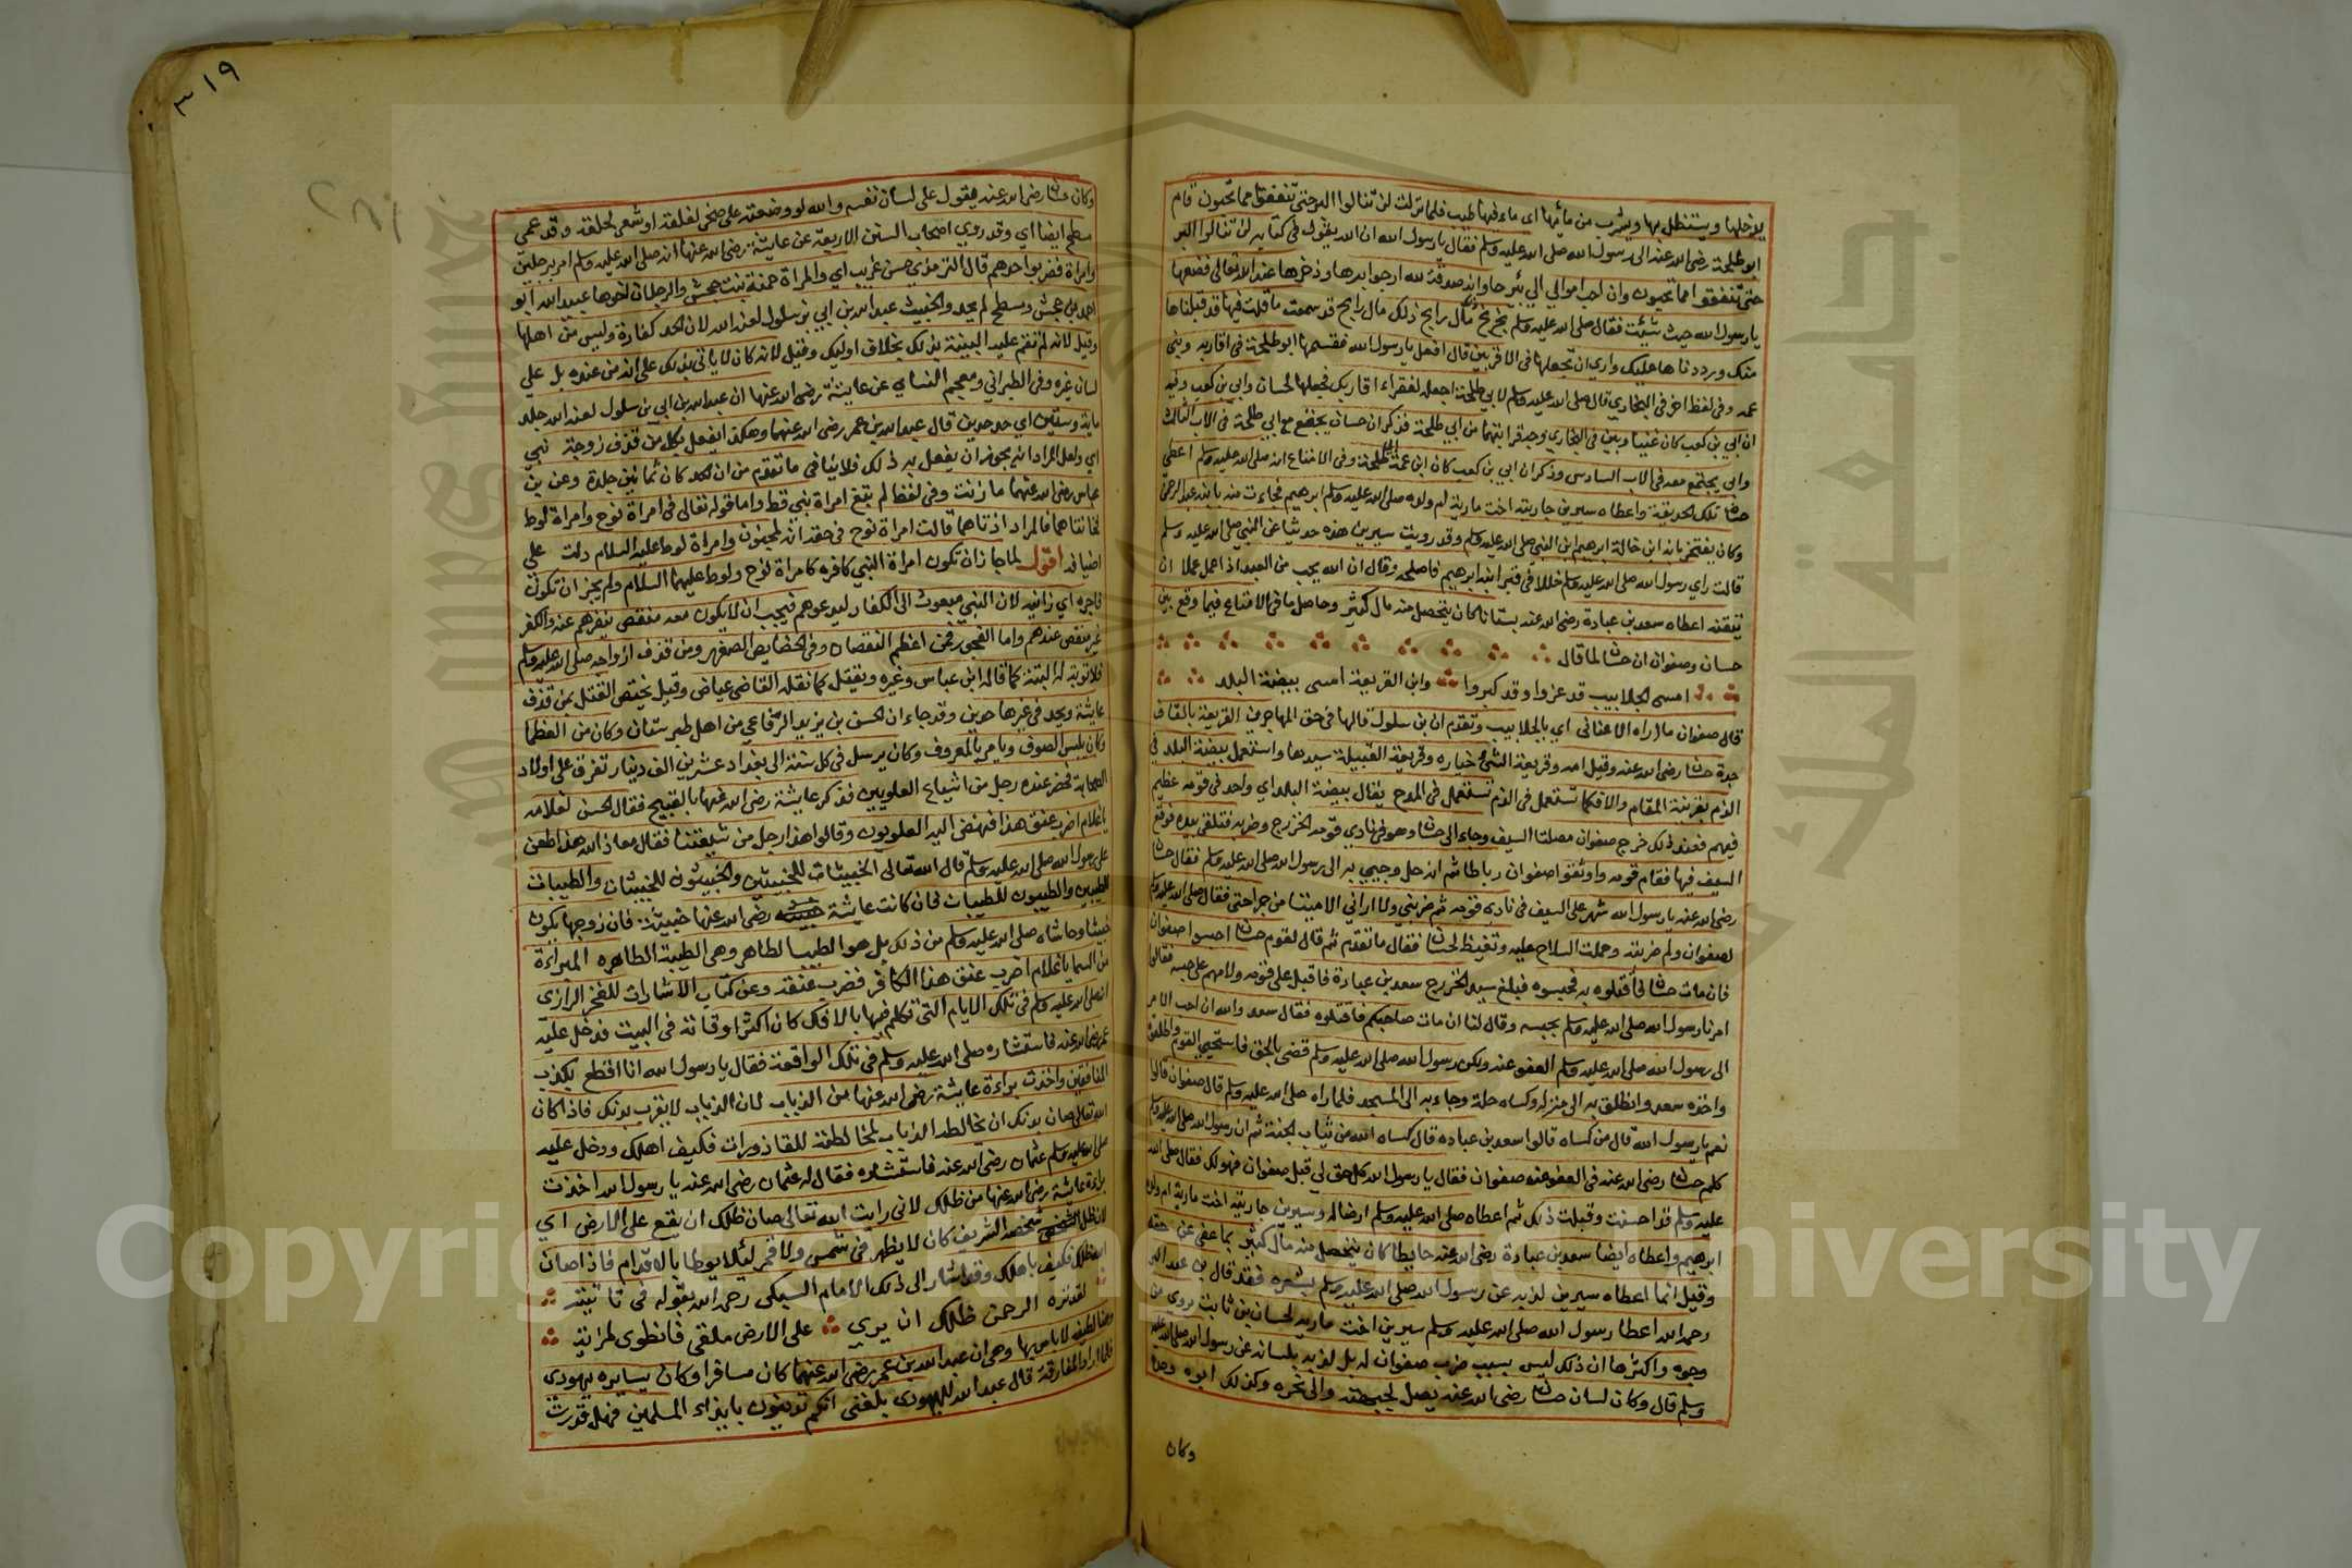 يدخلها ويستظل بها ويشرب من مائها اي ماء فيها طيب فلما نزلت لن تنالوا البر حتى تنفقوا مما تحبون قام
ابو طلحة رضي الله عنه الى رسول الله صلى الله عليه وسلم فقال يا رسول الله ان الله يقول في كتابه لن تنالوا البر
حتى تنفقوا مما تحبون وان احب اموالي الي بئر حا وانه صدقة لله ارجو برها وذخرها عند الله تعالى فضعها
يا رسول الله حيث شئت فقال صلى الله عليه وسلم بخ بخ ذلك مال رابح ذلك مال رابح قد سمعت ما قلت فيها قد قبلناها
منك ورددناها عليك واري ان تجعلها في الاقربين قال افعل يا رسول الله فقسمها ابو طلحة في اقاربه وبني
عمه وفي لفظ اخر في البخاري قال صلى الله عليه وسلم لابي طلحة اجعله لفقراء اقاربك فجعلها لحسان وابي بن كعب وفيه
ان ابي بن كعب كان غنيا وبين في البخاري وجه قرابتهما من ابي طلحة فذكر ان حسان يجتمع مع ابي طلحة في الاب الثالث
وابي يجتمع معه في الاب السادس وذكر ان ابي بن كعب كان ابن عمة ابي طلحة وفي الامتاع انه صلى الله عليه وسلم اعطى
حسان تلك الحديقة واعطاه سيرين جاريته اخت مارية ام ولده صلى الله عليه وسلم ابرهيم فجاءت منه بابنه عبد الرحمن
وكان يفتخر بانه ابن خالة ابرهيم ابن النبي صلى الله عليه وسلم وقد رويت سيرين هذه حديثا عن النبي صلى الله عليه وسلم
قالت راي رسول الله صلى الله عليه وسلم خللا في قبر ابنه ابرهيم فاصلحه وقال ان الله يحب من العبد اذا عمل عملا ان
يتقنه اعطاه سعد بن عبادة رضي الله عنه بستانا كان يتحصل منه مال كثير وحاصل ما في الامتاع فيما وقع بين
حسان وصفوان ان حسان لما قال
امسى الجلابيب قد عزوا وقد كبروا وابن الفريعة امسى بيضة البلد
قال صفوان ما اراه الا عناني اي بالجلابيب وتقدم ان بن سلول قالها في حق المهاجرين الفريعة بالقاف
جدة حسان رضي الله عنه وقيل امه وقريعة الشئ خياره وقريعة القبيلة سيدها واستعمل بيضة البلد في
الذم بقرينة المقام والا فكما تستعمل في الذم تستعمل في المدح يقال بيضة البلد اي واحد في قومه عظيم
فيهم فعند ذلك خرج صفوان مصلتا السيف وجاء الى حسان وهو في نادي قومه الخزرج وضربه فتلقى بيده فوقع
السيف فيها فقام قومه واوثقوا صفوان رباطا ثم انه حل وجيى به الى رسول الله صلى الله عليه وسلم فقال حسان
رضي الله عنه يا رسول الله شهر علي السيف في نادي قومه ثم ضربني ولا اراني الا ميتا من جراحتي فقال صلى الله عليه وسلم
لصفوان ولم ضربته وحملت السلاح عليه وتغيظ لحسان فقال ما تقدم ثم قال لقوم حسان احبسوا صفوان
فان مات حسان فاقتلوه به فحبسوه فبلغ سيد الخزرج سعد بن عبادة فاقبل على قومه ولامهم على حبسه فقالوا
امرنا رسول الله صلى الله عليه وسلم بحبسه وقال لنا ان مات صاحبكم فاقتلوه فقال سعد والله ان احب الامر
الى رسول الله صلى الله عليه وسلم العفو عنه ولكن رسول الله صلى الله عليه وسلم قضى بالحق فاستحيي القوم واطلقوه
واخذه سعد وانطلق به الى منزله وكساه حلة وجاء به الى المسجد فلما راه صلى الله عليه وسلم قال صفوان قالوا
نعم يا رسول الله قال من كساه قالوا سعد بن عباده قال كساه الله من ثياب الجنة ثم ان رسول الله صلى الله عليه وسلم
كلم حسان رضي الله عنه في العفو عنه صفوان فقال يا رسول الله كل حق لي قبل صفوان فهو لك فقال صلى الله
عليه وسلم قد احسنت وقبلت ذلك ثم اعطاه صلى الله عليه وسلم ارضا له وسيرين جاريته اخت مارية ام ولده
ابرهيم واعطاه ايضا سعد بن عبادة رضي الله عنه حايطا كان يتحصل منه مال كثير بما عفى عن حقه
وقيل انما اعطاه سيرين لذبه عن رسول الله صلى الله عليه وسلم بشعره فقد قال بن عبد البر
رحمه الله اعطا رسول الله صلى الله عليه وسلم سيرين اخت مارية لحسان بن ثابت يروي من
وجوه واكثرها ان ذلك ليس بسبب ضرب صفوان له بل لذبه بلسانه عن رسول الله صلى الله عليه
وسلم قال وكان لسان حسان رضي الله عنه يصل لجبهته والى نحره وكذلك ابوه وجده
وكان
٣١٩
وكان حسان رضي الله عنه يقول على لسان نفسه والله لو وضعته على صخر لفلقه او شعر لحلقه وقد عمي
مسطح ايضا اي وقد روي اصحاب السنن الاربعة عن عايشة رضي الله عنها انه صلى الله عليه وسلم امر برجلين
وامراة فضربوا حدهم قال الترمذي حسن غريب اي والمراة حمنة بنت جحش والرجلان اخوها عبيد الله ابو
احمد بن جحش ومسطح لم يحد والخبيث عبد الله بن ابي بن سلول لعنه الله لان الحد كفارة وليس من اهلها
وقيل لانه لم تقم عليه البينة بذلك بخلاف اوليك وقيل لانه كان لا ياتي بذلك على انه من عنده بل على
لسان غيره وفي الطبراني ومعجم النساي عن عايشة رضي الله عنها ان عبد الله بن ابي بن سلول لعنه الله جلد
ماية وستين اي حد حدين قال عبد الله بن عمر رضي الله عنهما وهكذا يفعل بكل من قذف زوجة نبي
اي ولعل المراد انه يجوز ان يفعل به ذلك فلا ينافي ما تقدم من ان الحد كان ثمانين جلدة وعن بن
عباس رضي الله عنهما ما زنت وفي لفظ لم تبغ امراة نبي قط واما قوله تعالى في امراة نوح وامراة لوط
فخانتاهما فالمراد اذتاهما قالت امراة نوح في حقه انه لمجنون وامراة لوط عليه السلام دلت على
اضيافه اقول لما جاز ان تكون امراة النبي كافره كامراة نوح ولوط عليهما السلام ولم يجز ان تكون
فاجره اي زانيه لان النبي مبعوث الى الكفار ليدعوهم فيجب ان لا يكون معه منقص ينفرهم عنه والكفر
غير منقص عندهم واما الفجور فمن اعظم النقصان وفي الخصايص الصغير ومن قذف ازواجه صلى الله عليه وسلم
فلا توبة له البتة كما قاله ابن عباس وغيره ويقتل كما نقله القاضي عياض وقيل يختص القتل بمن قذف
عايشة ويحد في غيرها حدين وقد جاء ان الحسن بن يزيد الرفاعي من اهل طبرستان وكان من العظما
وكان يلبس الصوف ويامر بالمعروف وكان يرسل في كل سنة الى بغداد عشرين الف دينار تفرق على اولاد
الصحابة فحضر عنده رجل من اشياع العلويين فذكر عايشة رضي الله عنها بالقبيح فقال الحسن لغلامه
يا غلام اضرب عنق هذا فنهض اليه العلويون وقالوا هذا رجل من شيعتنا فقال معاذ الله هذا طعن
على رسول الله صلى الله عليه وسلم قال الله تعالى الخبيثات للخبيثين والخبيثون للخبيثات والطيبات
للطيبين والطيبون للطيبات فان كانت عايشة رضي الله عنها خبيثة فان زوجها يكون
خبيثا وحاشاه صلى الله عليه وسلم من ذلك بل هو الطيب الطاهر وهي الطيبة الطاهره المبراءة
من السما يا غلام اضرب عنق هذا الكافر فضرب عنقه وعن كتاب الاشارات للفخر الرازي
انه صلى الله عليه وسلم في تلك الايام التي تكلم فيها بالافك كان اكثر اوقاته في البيت فدخل عليه
عمر رضي الله عنه فاستشاره صلى الله عليه وسلم في تلك الواقعة فقال يا رسول الله انا اقطع بكذب
المنافقين واخذت براءة عايشة رضي الله عنها من الذباب لان الذباب لا يقرب بدنك فاذا كان
الله تعالى صان بدنك ان يخالطه الذباب لمخالطته للقاذورات فكيف اهلك ودخل عليه
صلى الله عليه وسلم عثمان رضي الله عنه فاستشاره فقال له عثمان رضي الله عنه يا رسول الله اخذت
براءة عايشة رضي الله عنها من ظلك لاني رايت الله تعالى صان ظلك ان يقع على الارض اي
لان ظل شخصه الشريف كان لا يظهر في شمس ولا قمر لئلا يوطا بالاقدام فاذا صان
الله ظلك فكيف باهلك وقد اشار الى ذلك الامام السبكي رحمه الله بقوله في تائيته
لقد نزه الرحمن ظلك ان يرى على الارض ملقى فانطوى لمزية
وهنا لطيفة لا باس بها وهي ان عبد الله بن عمر رضي الله عنهما كان مسافرا وكان يسايره يهودي
فلما اراد المفارقة قال عبد الله لليهودي بلغني انكم تدينون بايذاء المسلمين فهل قدرت
Copyright © King Saud University
جامعة الملك سعود